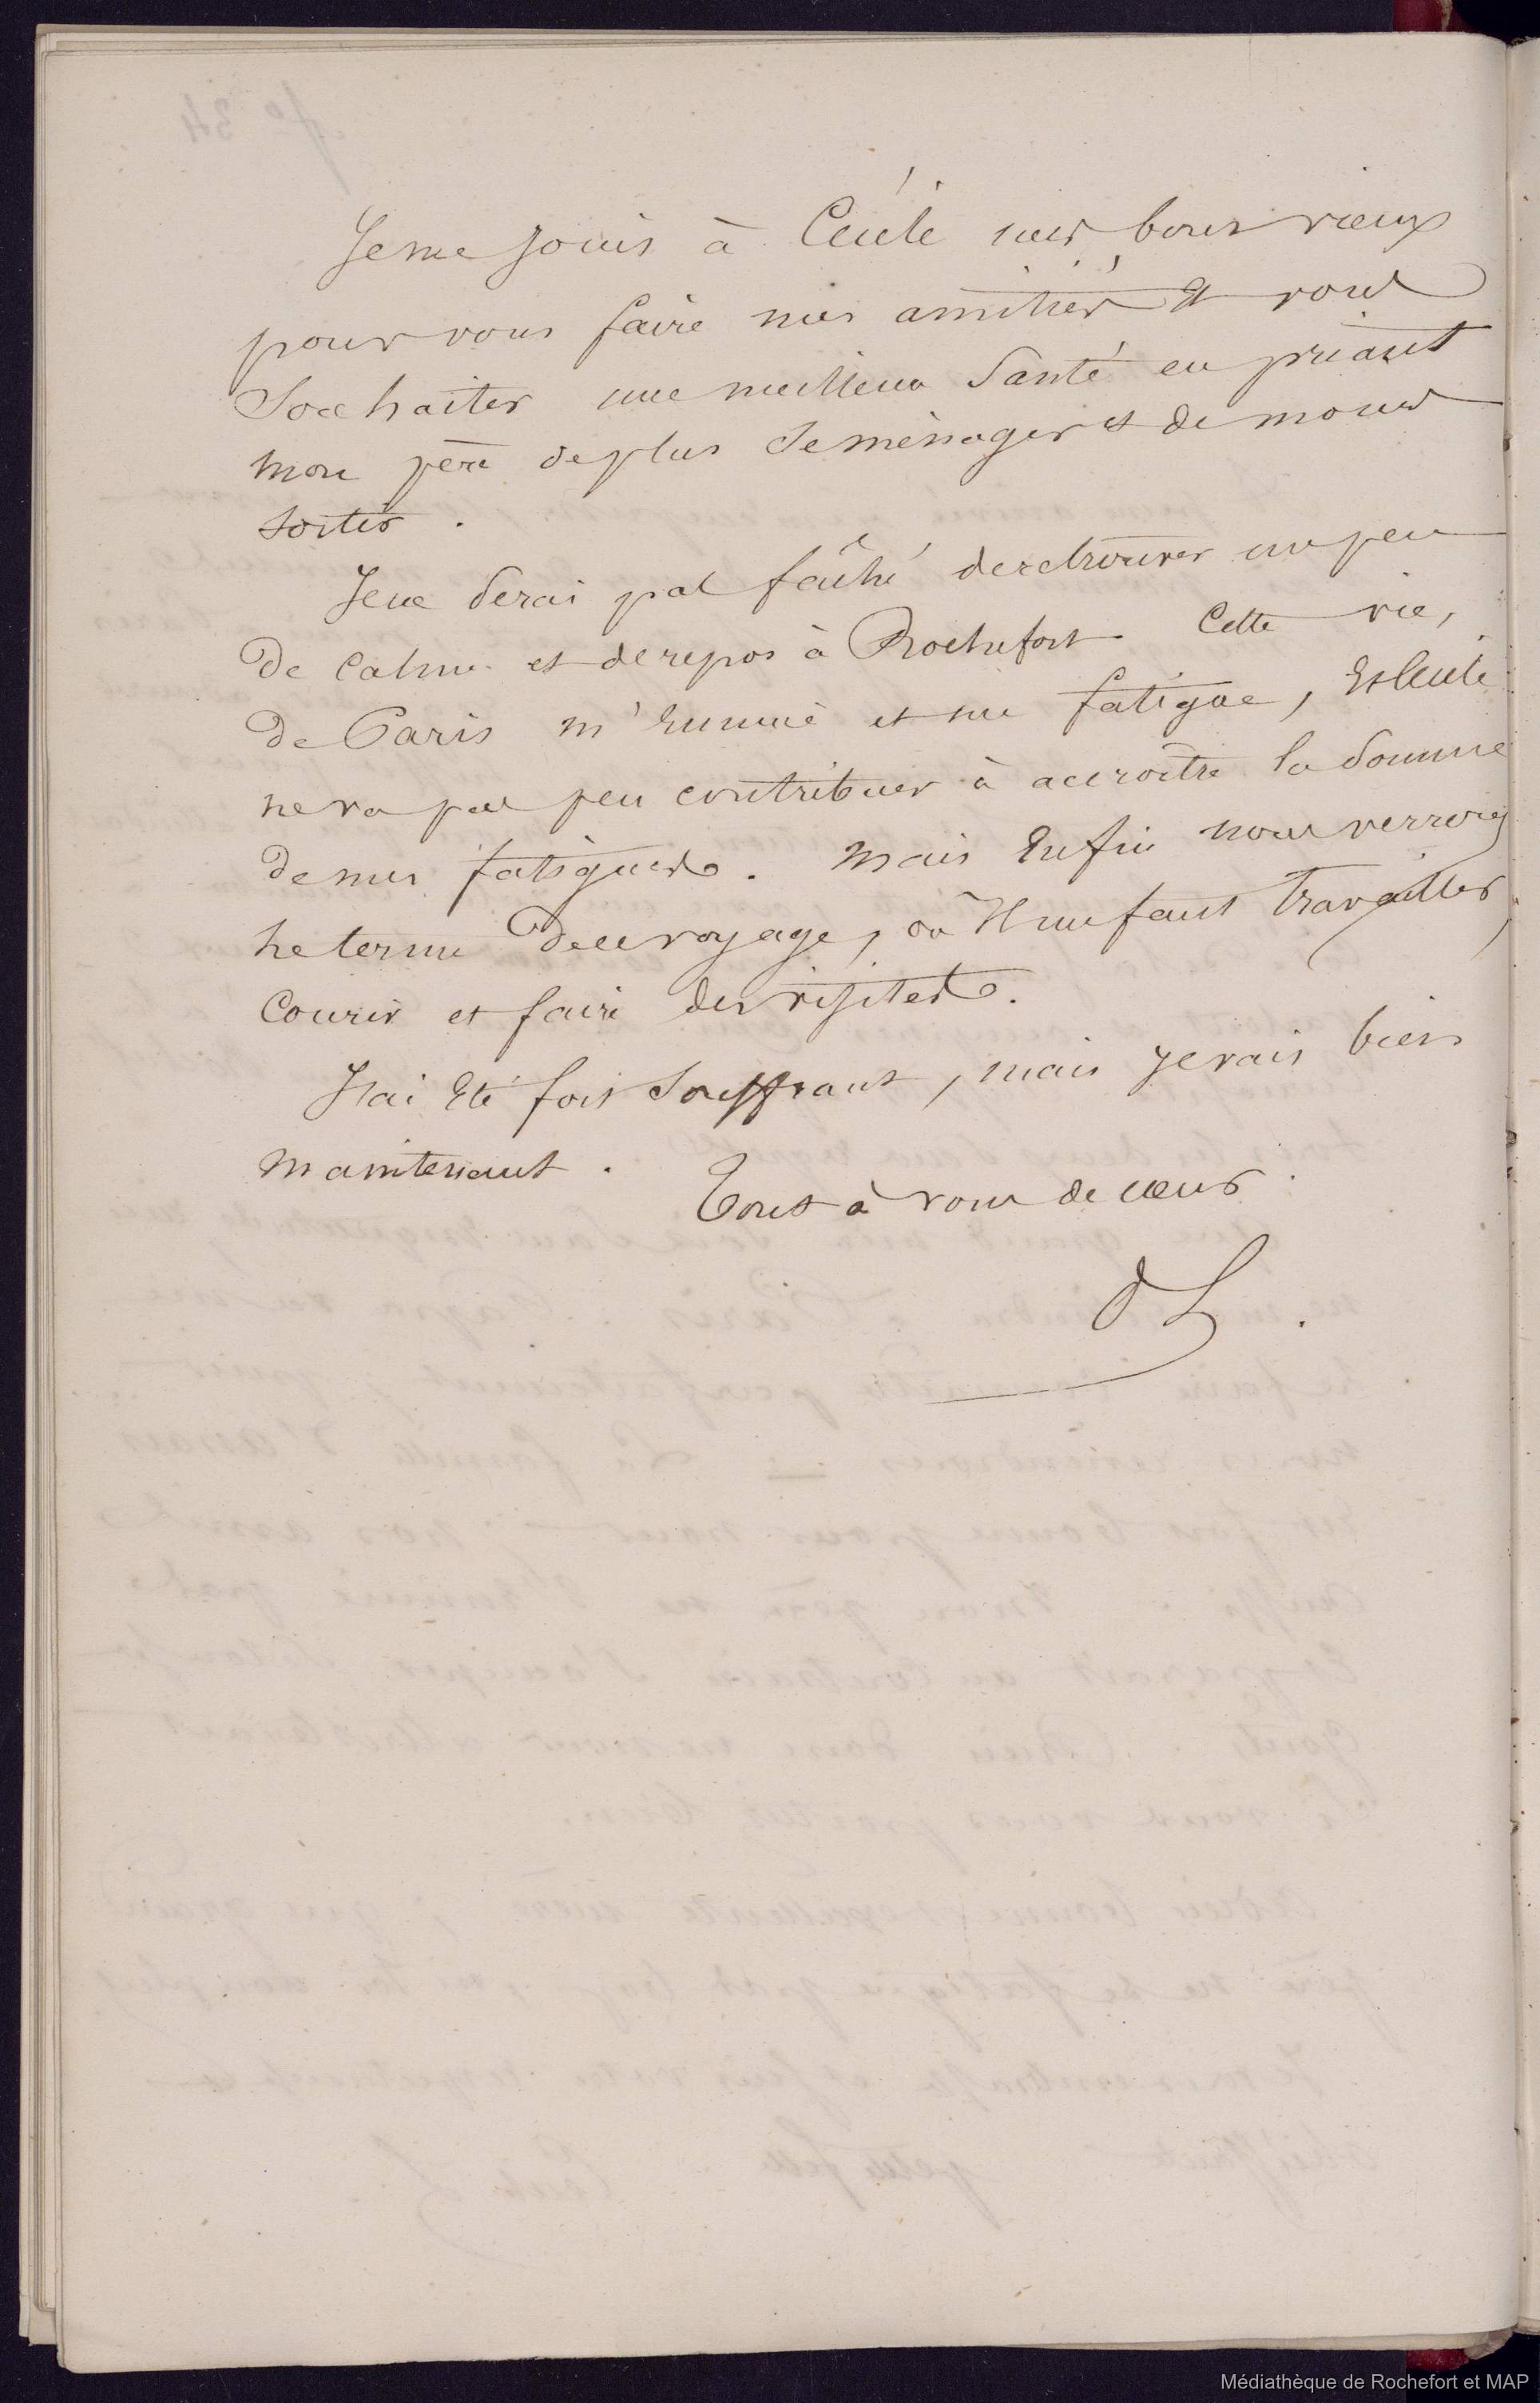 Je me joins à Cécile mes bons vieux
pour vous faire mes amitiés et vous
souhaiter une meilleur santé en priant
mon père de plus se ménager et de moins
sortir.
Je ne serai pas fâché de retrouver un peu
de calme et de repos à Rochefort. Cette vie,
de Paris m'ennuie et me fatigue, et Cécile
ne va pas peu contribuer à accroître la somme
de mes fatigues. Mais enfin nous verrons
le terme de ce voyage, où il me faut travailler,
courir et faire des visites.
J'ai été fort souffrant, mais je vais bien
maintenant.
Tout à vous de cœur.
Médiathèque de Rochefort et MAP